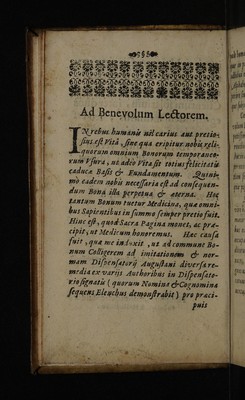 Ad Benevolum Lectorem.
IN rebus humanis nil carius aut pretio-
sius est Vitâ, sine qua eripitur nobis reli-
quorum omnium Bonorum temporaneo-
rum Vsura, ut adeò Vita sit totius felicitatis
caduca Basis & Fundamentum. Quini-
mò eadem nobis necessaria est ad consequen-
dum Bona illa perpetua & æterna. Hoc
tantum Bonum tuetur Medicina, qua omni-
bus Sapientibus in summo semper pretio fuit.
Hinc est, quod Sacra Pagina monet, ac præ-
cipit, ut Medicum honoremus. Hæc causa
fuit, quæ me induxit, ut ad commune Bo-
num Colligerem ad imitationem & nor-
mam Dispensatorij Augustani diversa re-
media ex varijs Authoribus in Dispensato-
rio signatis (quorum Nomina & Cognomina
sequens Elenchus demonstrabit) pro præci-
puis